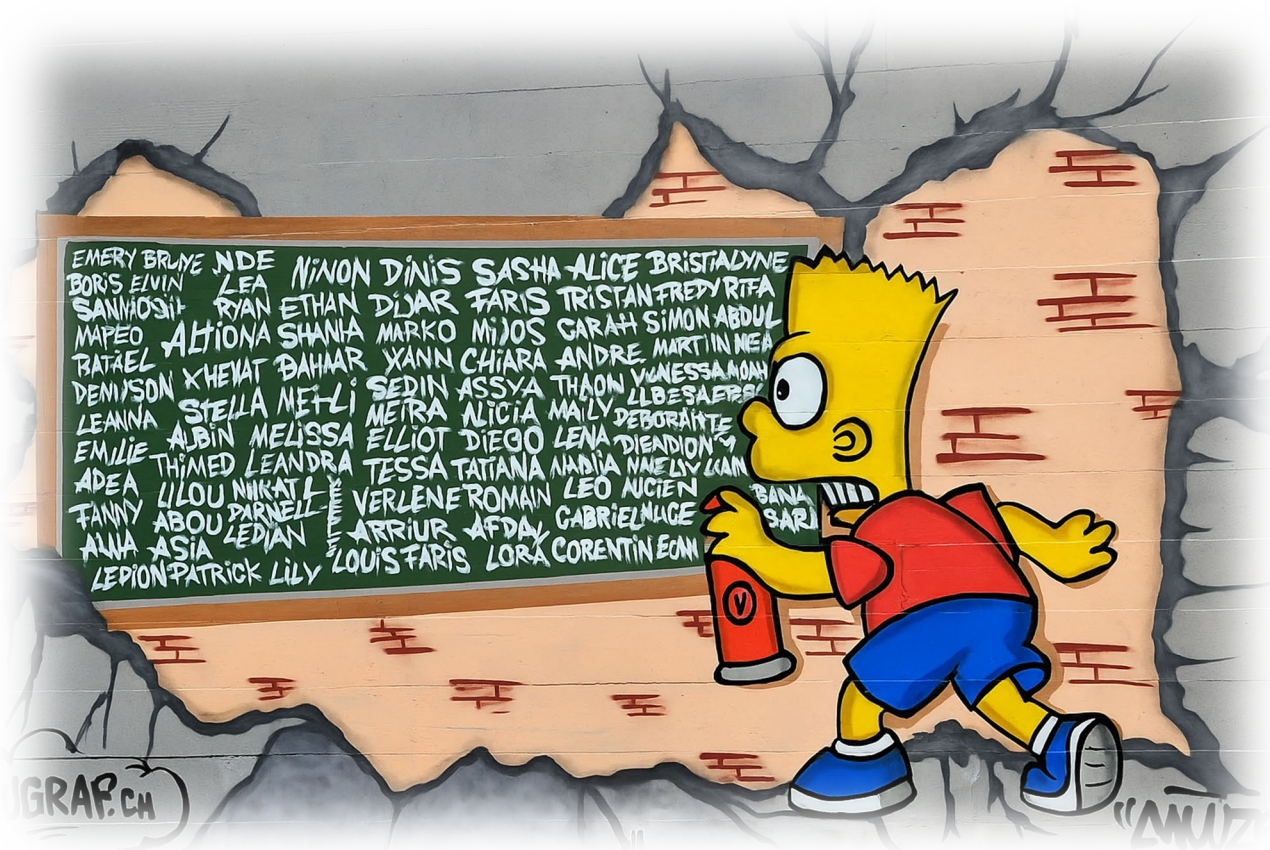 EMERY BRUNE NDE NINON DINIS SASHA ALICE BRISTIALYNE
BORIS ELVIN LEA
RYAN ETHAN DIJAR FARIS TRISTAN FREDY RITA
MAPEO ALTIONA SHANIA MARKO MIJOS SARAH SIMON ABDUL
RAFAEL XHEVAT BAHAAR YANN CHIARA ANDRE MARTIN NEA
DENIJSON STELLA MEHLI SEDIN ASSYA THAON VANESSA NOAH
LEANNA ALBIN MELISSA MEIRA ALICIA MAILY DEBORAH
EMILIE THIMED LEANDRA ELLIOT DIEGO LENA
ADEA LILOU TESSA TATIANA NADIA
FANNY ABOU PARNELL VERLENE ROMAN LEO LUCIEN BANA
AWA ASIA LEDIAN ARRIUR AFDAY GABRIEL SARI
LEDION PATRICK LILY LOUIS FARIS LORA CORENTIN
V
GRAF.CH